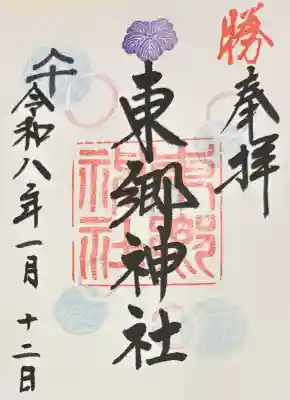 勝
奉拝
東郷神社
東郷
神社
令和八年一月十二日